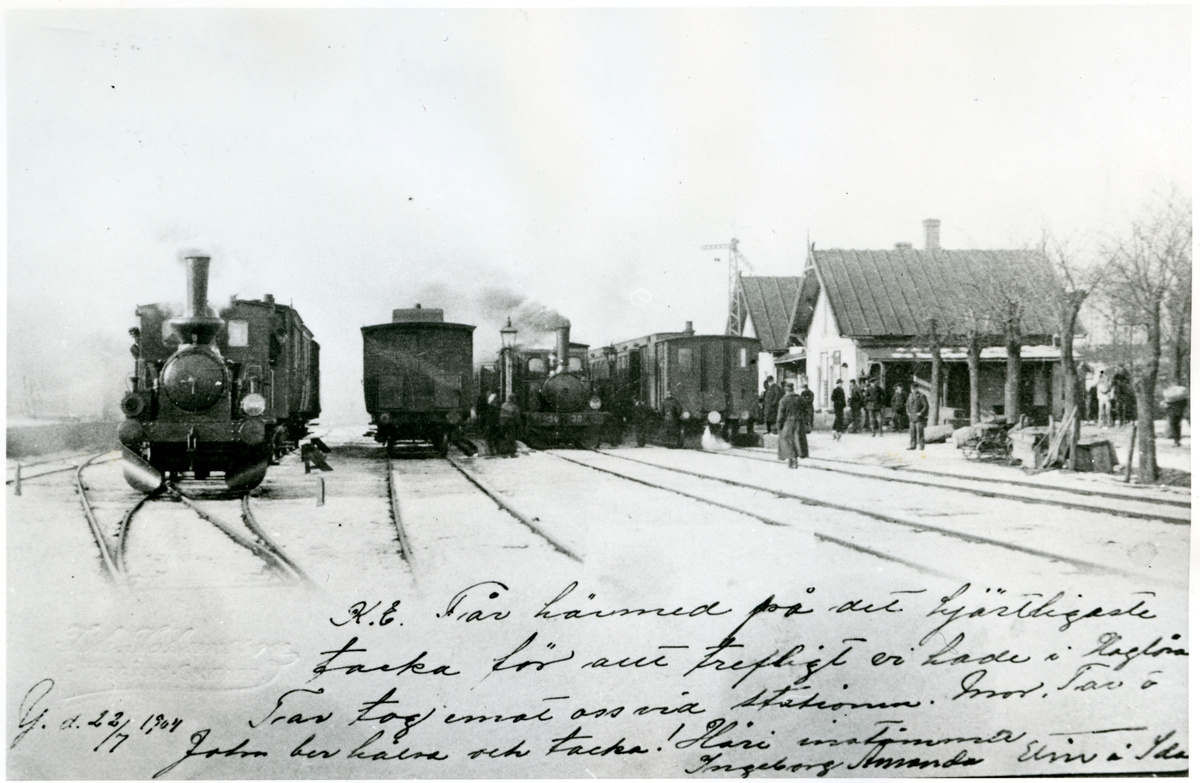 K.E. Får härmed på det hjärtligaste
tacka för att trefligt vi hade i Haglösa
Far tog emot oss vid stationen. Mor, Far o
John ber hälsa och tacka! Häri instämmer
Ingeborg Amanda Elin å Ida
Y. d. 22/7 1904